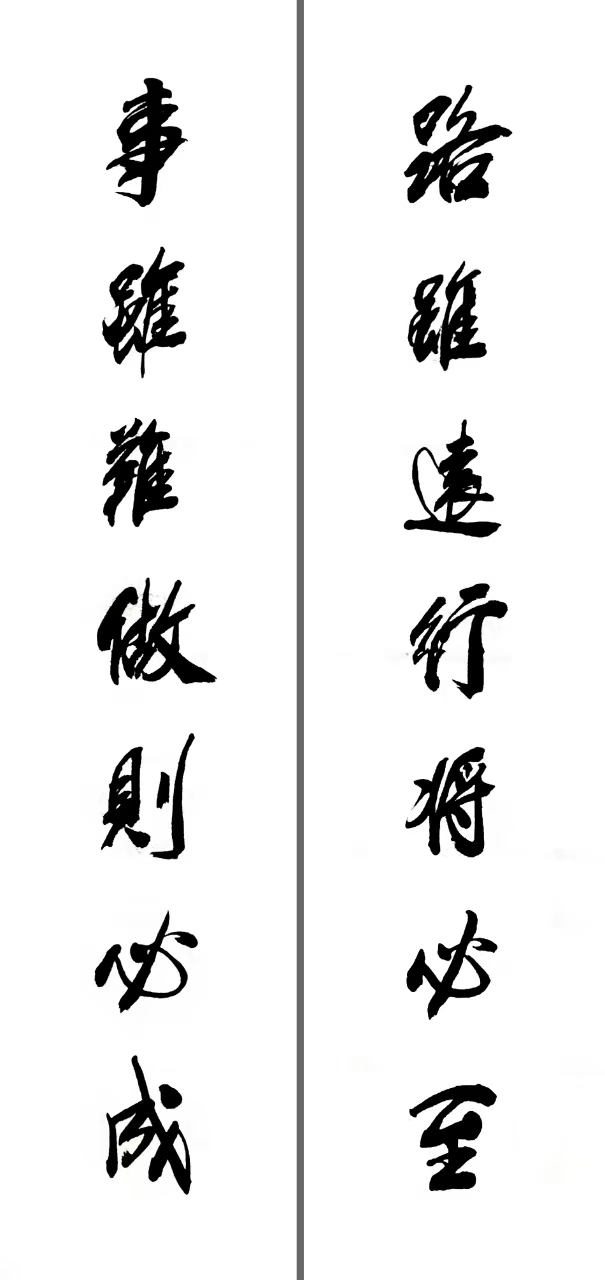 路雖遠行将必至
事雖難做則必成